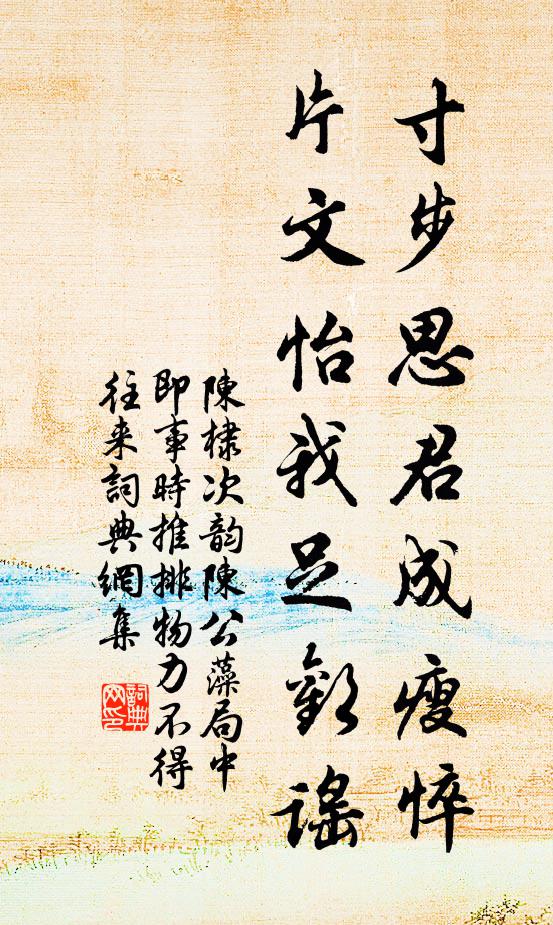 寸步思君成瘦悴
片文怡我足歡謡
陳棣次韵陳公藻局中
即事時推排物力不得
往来詞典網集
詞典网印